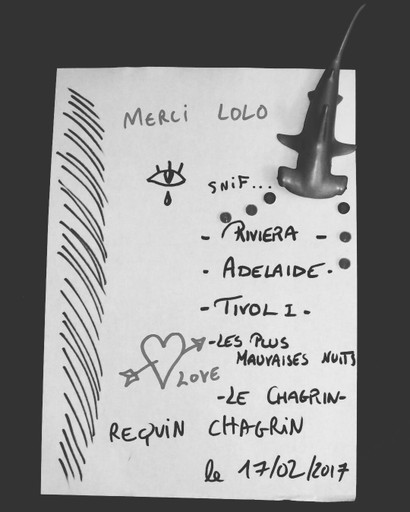 MERCi LOLO
SNiF...
- RIVIERA -
- ADELAIDE -
- TIVOLI -
- LES PLUS
MAUVAISES NUITS
LOVE
- LE CHAGRIN -
REQUIN CHAGRIN
le 17/02/2017